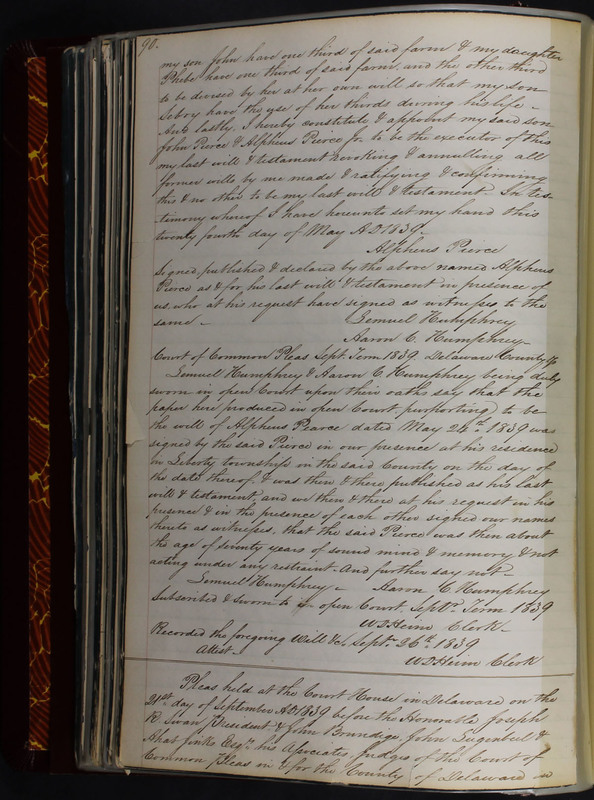 90.
my son John have one third of said farm & my daughter
Phebe have one third of said farm, and the other third
to be devised by her at her own will so that my son
have the use of her thirds during his life -
And lastly, I hereby constitute & appoint my said son
John Pierce & Alpheus Pierce Jr. to be the executor of this
my last will & testament revoking & annulling all
former wills by me made & ratifying & confirming
this & no other to be my last will & testament. In tes-
timony whereof I have hereunto set my hand this
twenty fourth day of May A.D. 1839.
Alpheus Pierce
Signed, published & declared by the above named Alpheus
Pierce as & for his last will & testament in presence of
us who at his request have signed as witnesses to the
same - Lemuel Humphrey
Aaron C. Humphrey -
Court of Common Pleas Sept. Term 1839. Delaware County
Lemuel Humphrey & Aaron C Humphrey being duly
sworn in open Court upon their oaths say that the
paper here produced in open Court purporting to be
the will of Alpheus Pearce dated May 24th. 1839 was
signed by the said Pierce in our presence at his residence
in Liberty township in the said County on the day of
the date thereof & was then & there published as his last
will & testament, and we then & there at his request in his
presence & in the presence of each other signed our names
thereto as witnesses, that the said Pierce was then about
the age of seventy years of sound mind & memory & not
acting under any restraint. And further say not -
Lemuel Humphrey - Aaron C. Humphrey
Subscribed & sworn to in open Court. Septr. Term 1839
W D Heim Clerk -
Recorded the foregoing Will &c. Sept. 26th. 1839
Attest - W D Heim Clerk
Pleas held at the Court House in Delaware on the
21st. day of September A.D. 1839 before the Honorable Joseph
R Swan President & John Brundige, John Lugenbeel &
Finks Esqrs. his Associates, Judges of the Court of
Common pleas in & for the County of Delaware